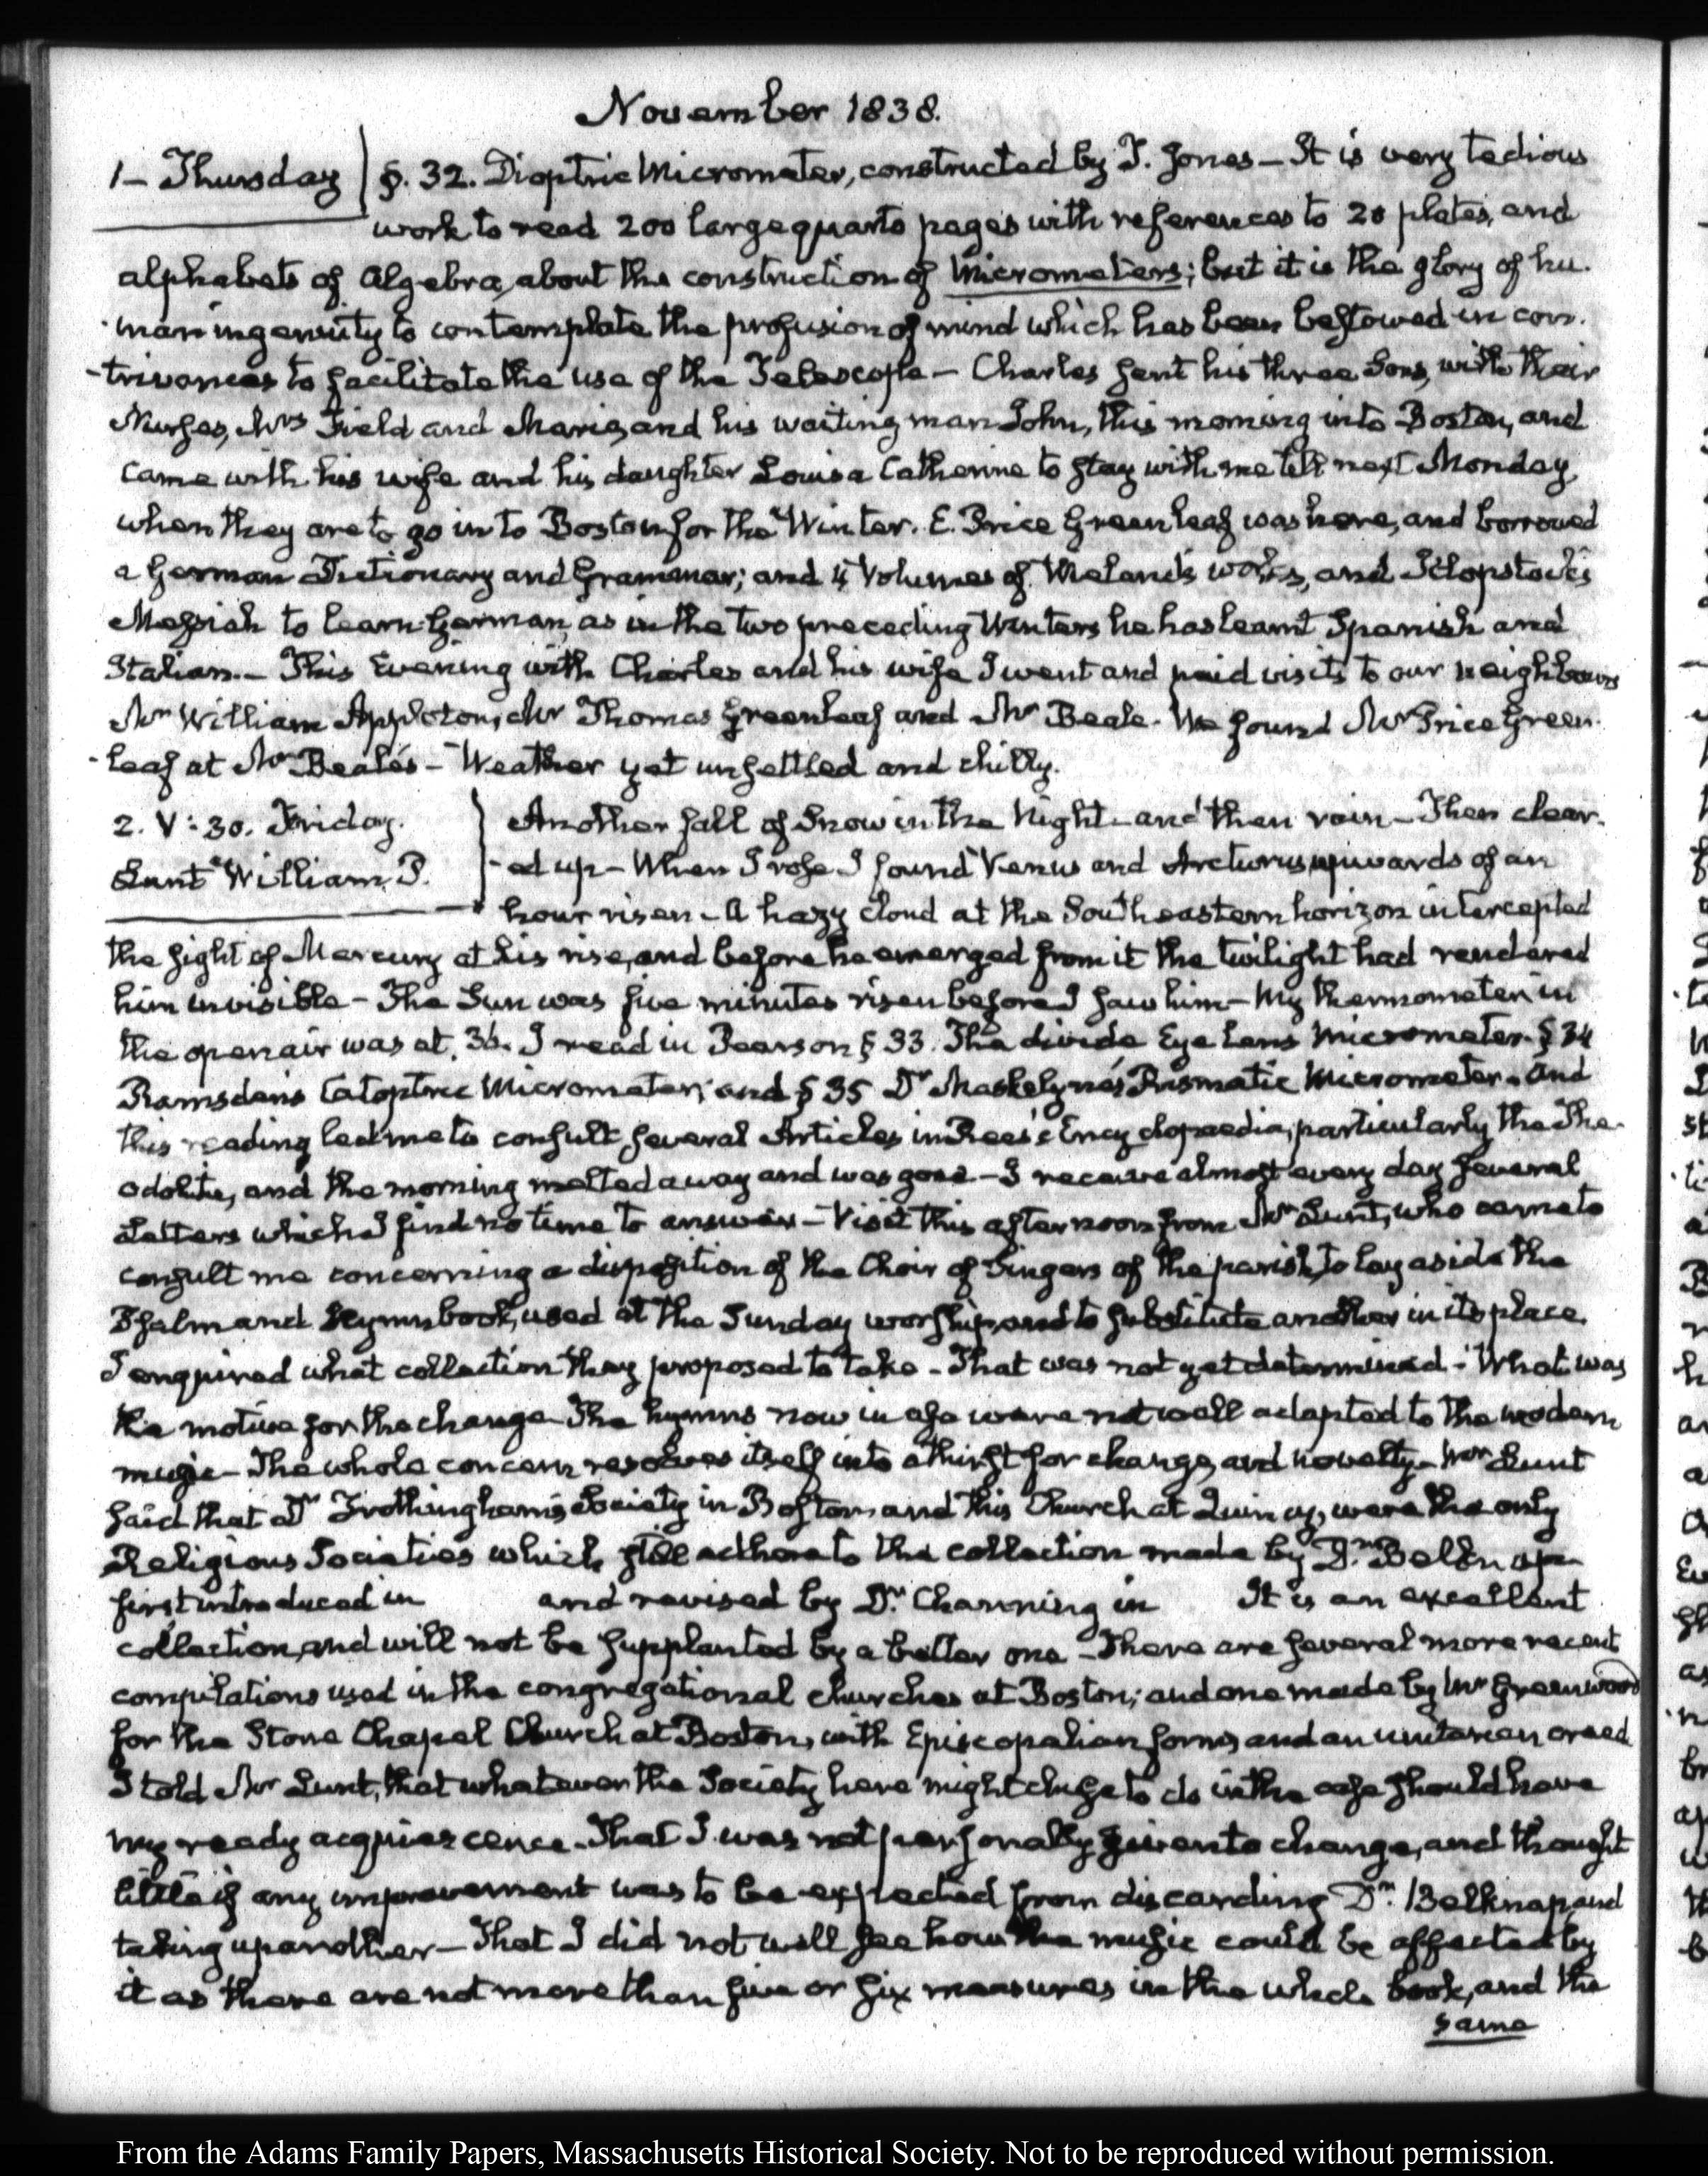 November 1838.
1 – Thursday
§. 32. Dioptric Micrometer, constructed by T. Jones – It is very tedious
work to read 200 large quarto pages with references to 28 plates, and
alphabets of Algebra, about the construction of Micrometers; but it is the glory of hu-
-man ingenuity to contemplate the profusion of mind which has been bestowed in con-
-trivances to facilitate the use of the Telescope – Charles sent his three Sons, with their
Nurses, Mrs Field and Maria, and his waiting man John, this morning into Boston, and
came with his wife and his daughter Louisa Catherine to stay with me till next Monday,
when they are to go into Boston for the Winter. E. Price Greenleaf was here, and borrowed
a German Dictionary and Grammar; and 4 Volumes of works, and Klopstock's
Messiah to learn German, as in the two preceding Winters he has learnt Spanish and
Italian. – This Evening with Charles and his wife I went and paid visits to our neighbours
Mr William Appleton, Mr Thomas Greenleaf and Mr Beale. We found Mr Price Green-
-leaf at Mr Beale's – Weather yet unsettled and chilly.
2. V:30. Friday.
Lunt William P.
Another fall of Snow in the Night – and then rain – Then clear-
-ed up – When I rose I found Venus and Arcturus upwards of an
hour risen – A hazy cloud at the Southeastern horizon intercepted
the sight of Mercury at his rise, and before he emerged from it the twilight had rendered
him invisible – The Sun was five minutes risen before I saw him – My thermometer in
the open air was at 36. I read in Pearson § 33. The divide Eye Lens Micrometer. § 34
Ramsden's Catoptric Micrometer; and § 35 Dr Maskelyne's Prismatic Micrometer. And
this reading led me to consult several Articles in Rees's Encyclopaedia, particularly the The-
odolite, and the morning melted away and was gone – I receive almost every day several
Letters which I find no time to answer – Visit this afternoon from Mr Lunt, who came to
consult me concerning a disposition of the Choir of Singers of the parish, to lay aside the
Psalm and Hymn book, used at the Sunday worship, and to substitute another in its place.
I enquired what collection they proposed to take – That was not yet determined – What was
the motive for the change – The hymns now in use were not well adapted to the modern
music – The whole concern resolves itself into a thirst for change, and novelty – Mr Lunt
said that Dr Frothingham's Society in Boston and this Church at Quincy, were the only
Religious Societies which still adhere to the collection made by Dr Belknap
first introduced in and revised by Dr. Channing in It is an excellent
collection, and will not be supplanted by a better one – There are several more recent
compilations used in the congregational churches at Boston; and one made by Mr Greenwood
for the Stone Chapel Church at Boston, with Episcopalian forms, and an unitarian creed
I told Mr Lunt, that whatever the Society here might chuse to do in the case should have
my ready acquiescence – That I was not personally given to change, and thought
little if any improvement was to be expected from discarding Dr. Belknap, and
taking up another – That I did not well see how the music could be affected by
it as there are not more than five or six measures in the whole book, and the
same
From the Adams Family Papers, Massachusetts Historical Society. Not to be reproduced without permission.